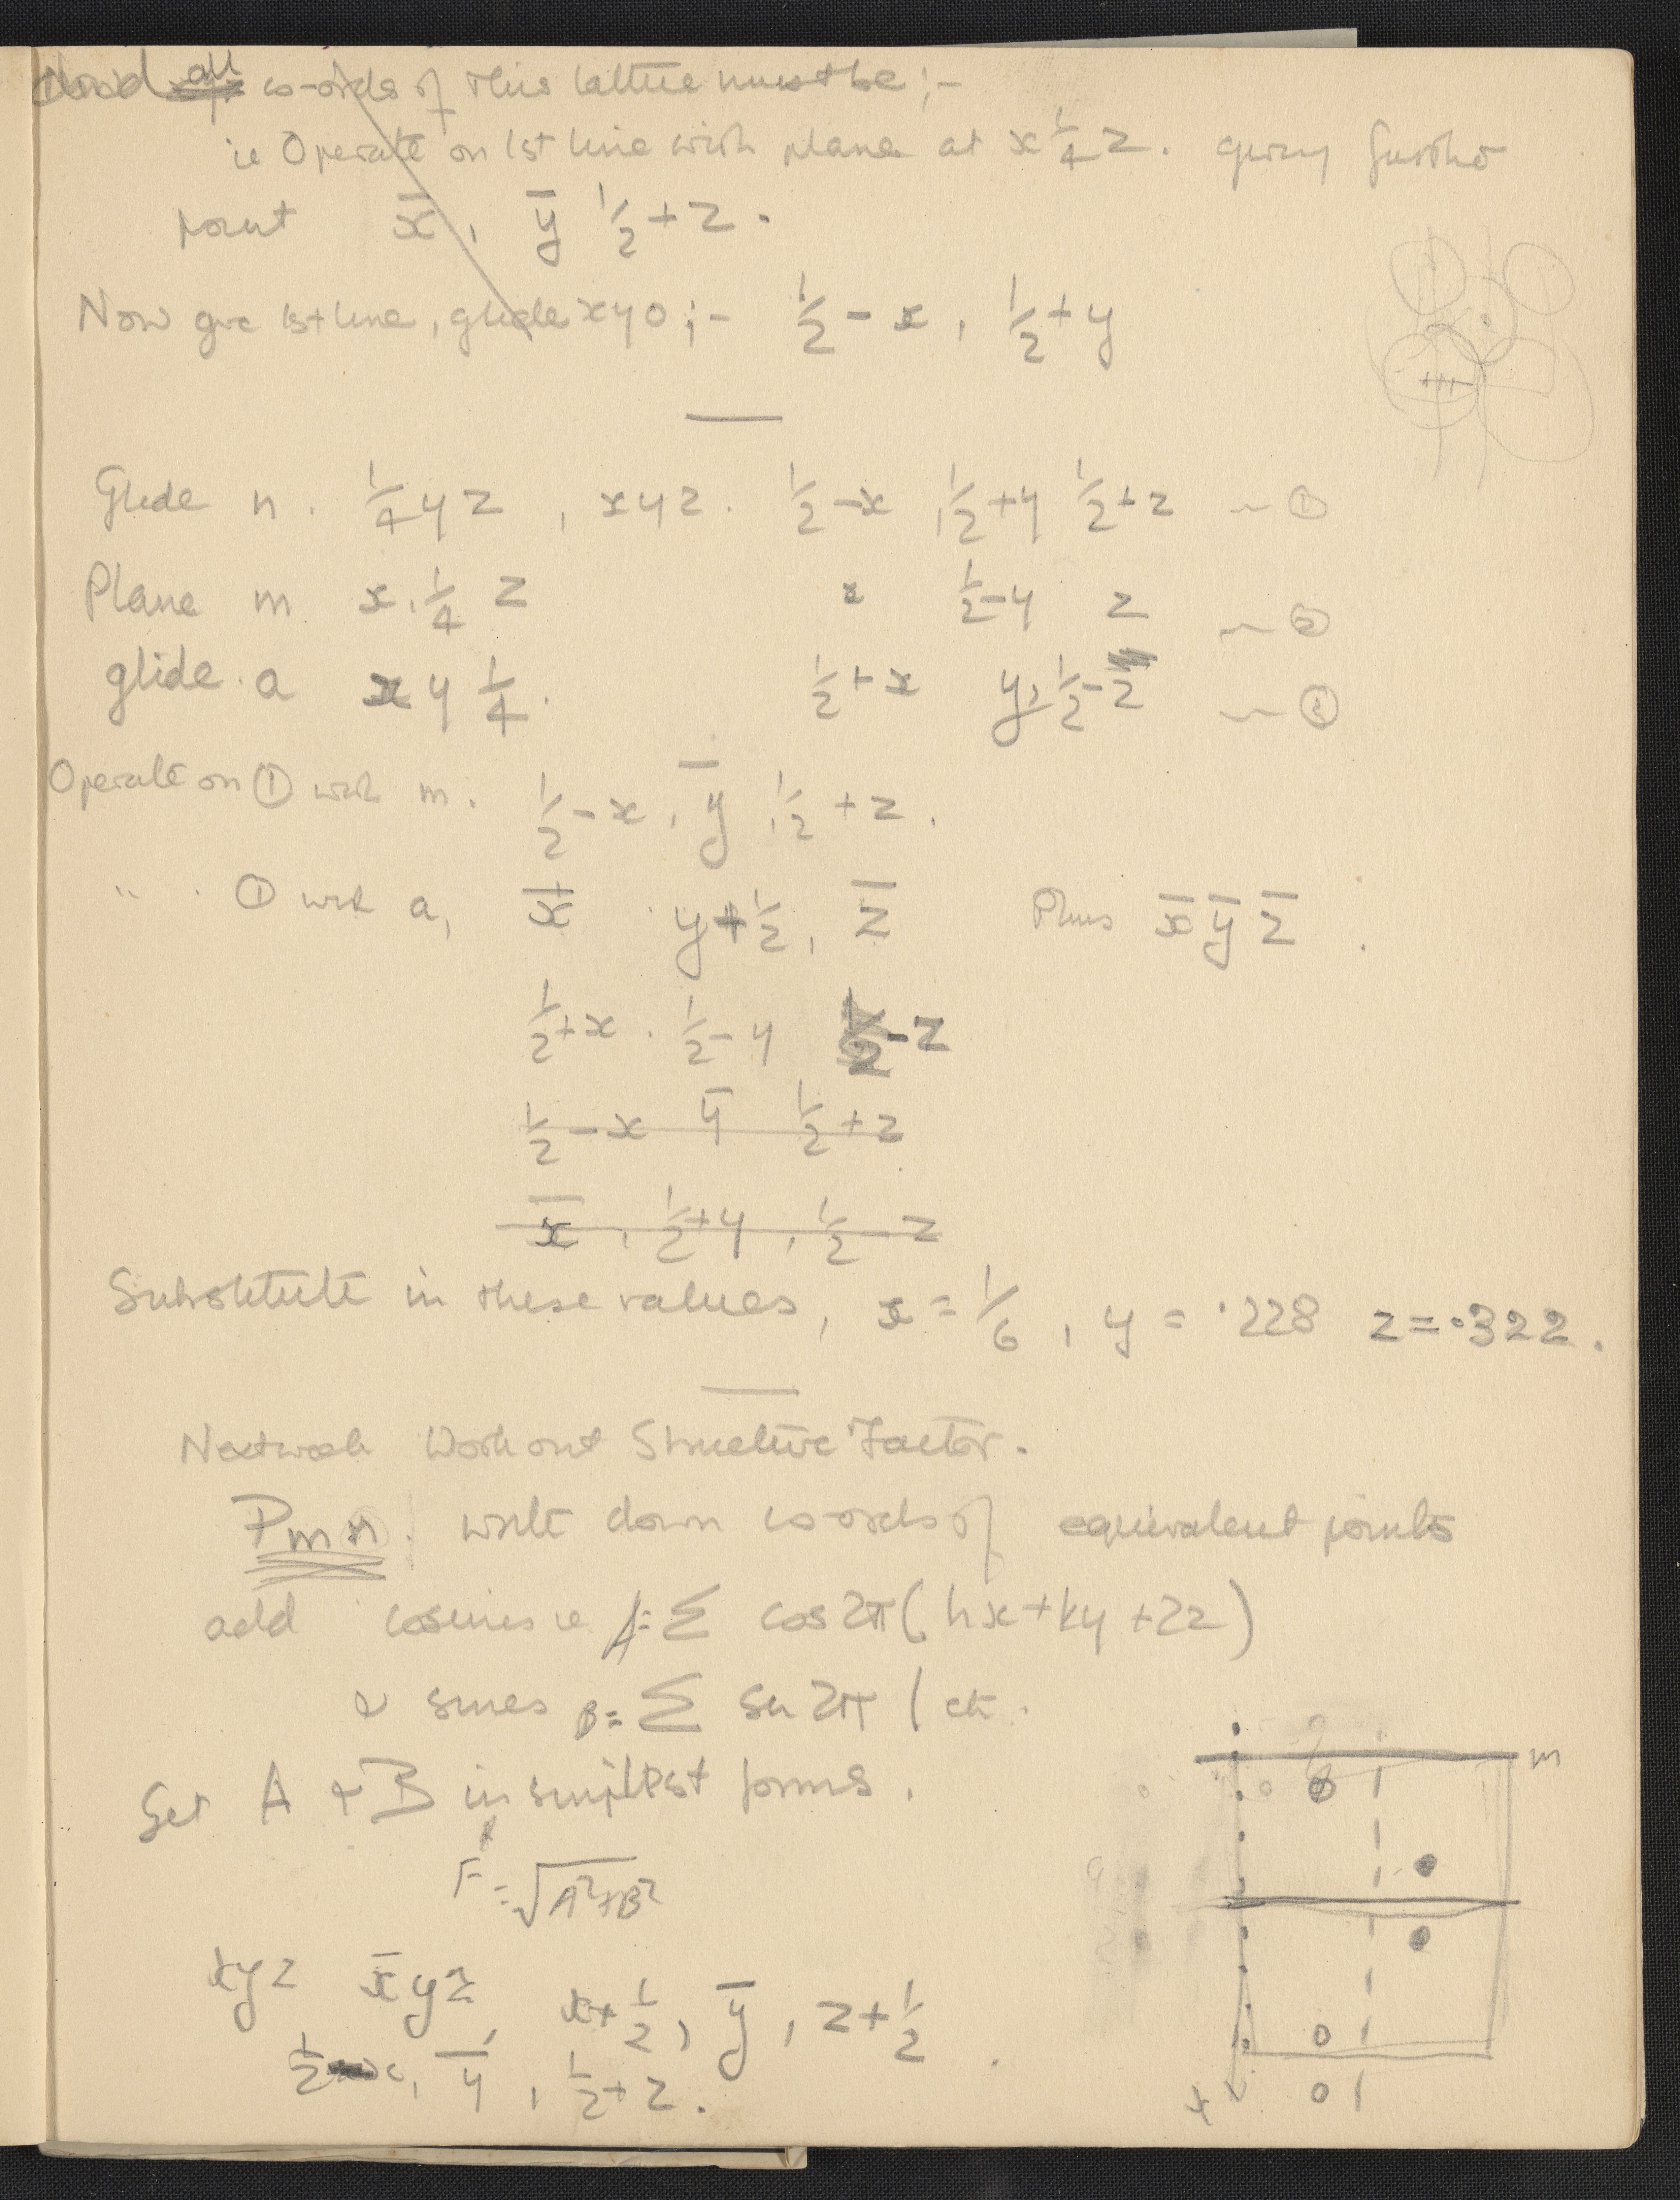 all co-ords of this lattice must be ;-
ie Operate on 1st line with plane at x ¼ z. giving further
point x̄, ȳ ½ + z.
Now give 1st line, glide x y 0 ;- ½ - x, ½ + y
Glide n. ¼ y z, x y z. ½ - x, ½ + y ½ + z ~ ①
Plane m x. ¼ z x ½ - y z ~ ②
glide. a x y ¼. ½ + x y, ½ - z ~ ③
Operate on ① with m. ½ - x, ȳ, ½ + z.
" ① with a, x̄ y + ½, z̄ Plus x̄ ȳ z̄
½ + x. ½ - y ½ - z
½ - x ȳ ½ + z
x̄, ½ + y, ½ - z
Substitute in these values, x = 1/6, y = ·228 z = ·322.
Next week Work out Structure Factor.
Pmn. write down co-ords of equivalent points
add cosines ie A = Σ cos 2π (hx + ky + lz)
& sines B = Σ sin 2π ( etc.
Get A & B in simplest forms.
F = √A² + B²
m
xyz x̄yz, x + ½, ȳ, z + ½
½ - x, ȳ, ½ + z.
x